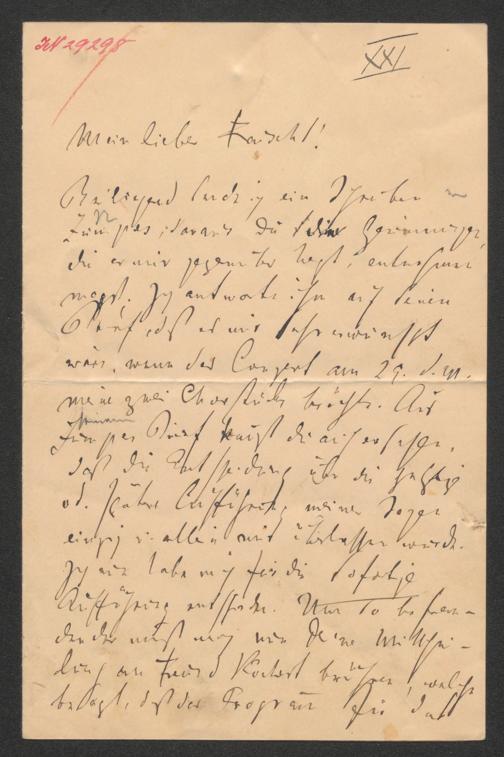 IN 29298
XXI
Mein lieber Kaischt!
Beiliegend send ich ein Schreiben von
Zumpes, daraus Du die Gesinnungen,
die er mir gegenüber hegt, entnehmen
magst. Ich antworte ihm auf seinen
Brief, daß es mir sehr erwünscht
wäre, wenn das Concert am 29. d. M.
meine zwei Chorstücke brächte. Aus
Zumpes Brief kannst du auch ersehen,
daß die Entscheidung über die jetzige
od. spätere Aufführung meiner Sogen
einzig u. allein mir überlassen wurde.
Ich nun habe mich für die sofortige
Aufführung entschieden. Um so befrem-
dender muß mich nun Deine Mitthei-
lung an Freund Köchert berühren, welche
besagt, daß das Programm für das